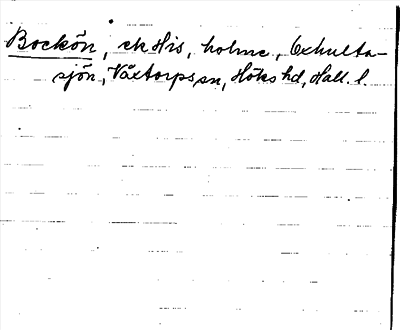 Bockön, ek His, holme, Oxhulta-
sjön, Växtorps sn, Höks hd, Hall. l.